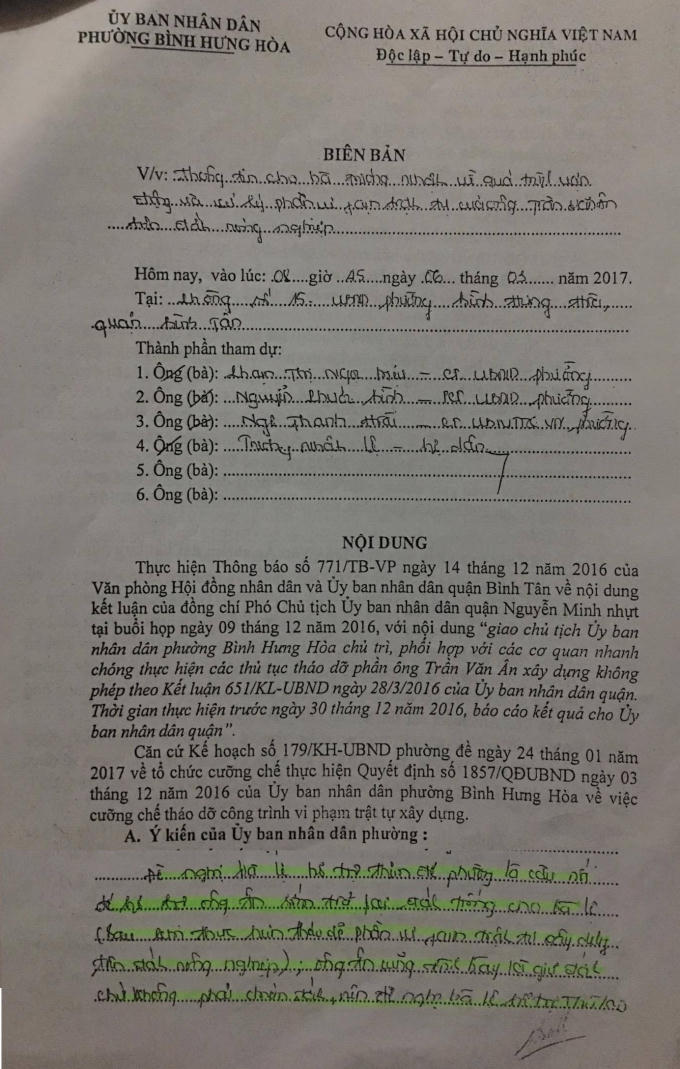 ỦY BAN NHÂN DÂN
PHƯỜNG BÌNH HƯNG HÒA
CỘNG HÒA XÃ HỘI CHỦ NGHĨA VIỆT NAM
Độc lập – Tự do – Hạnh phúc
BIÊN BẢN
V/v: Thông tin cho bà Trương về quá trình vận
động và xử lý phần vi phạm trật tự của ông Trần
trên đất nông nghiệp
Hôm nay, vào lúc: 08 giờ 45 ngày 06 tháng 03 năm 2017.
Tại: phòng số 15 UBND phường Bình Hưng Hòa,
quận Bình Tân
Thành phần tham dự:
1. Ông (bà): Phan Thị Nga – CT UBND phường
2. Ông (bà): Nguyễn – PCT UBND phường
3. Ông (bà): Ngô Thanh – CT UBMTTQ VN phường
4. Ông (bà): Lê – hộ dân
5. Ông (bà):
6. Ông (bà):
NỘI DUNG
Thực hiện Thông báo số 771/TB-VP ngày 14 tháng 12 năm 2016 của
Văn phòng Hội đồng nhân dân và Ủy ban nhân dân quận Bình Tân về nội dung
kết luận của đồng chí Phó Chủ tịch Ủy ban nhân dân quận Nguyễn Minh nhựt
tại buổi họp ngày 09 tháng 12 năm 2016, với nội dung “giao chủ tịch Ủy ban
nhân dân phường Bình Hưng Hòa chủ trì, phối hợp với các cơ quan nhanh
chóng thực hiện các thủ tục tháo dỡ phần ông Trần Văn Ân xây dựng không
phép theo Kết luận 651/KL-UBND ngày 28/3/2016 của Ủy ban nhân dân quận.
Thời gian thực hiện trước ngày 30 tháng 12 năm 2016, báo cáo kết quả cho Ủy
ban nhân dân quận”.
Căn cứ Kế hoạch số 179/KH-UBND phường đề ngày 24 tháng 01 năm
2017 về tổ chức cưỡng chế thực hiện Quyết định số 1857/QĐUBND ngày 03
tháng 12 năm 2016 của Ủy ban nhân dân phường Bình Hưng Hòa về việc
cưỡng chế tháo dỡ công trình vi phạm trật tự xây dựng.
A. Ý kiến của Ủy ban nhân dân phường :
Đề nghị bà Lê hỗ trợ thêm để phường là cầu nối
để hỗ trợ ông Ân sớm trả lại đất trống cho bà Lê
(sau khi thực hiện tháo dỡ phần vi phạm trật tự xây dựng
trên đất nông nghiệp); ông Ân cũng giữ đất
chứ không phải chiếm đất, nên đề nghị bà Lê hỗ trợ